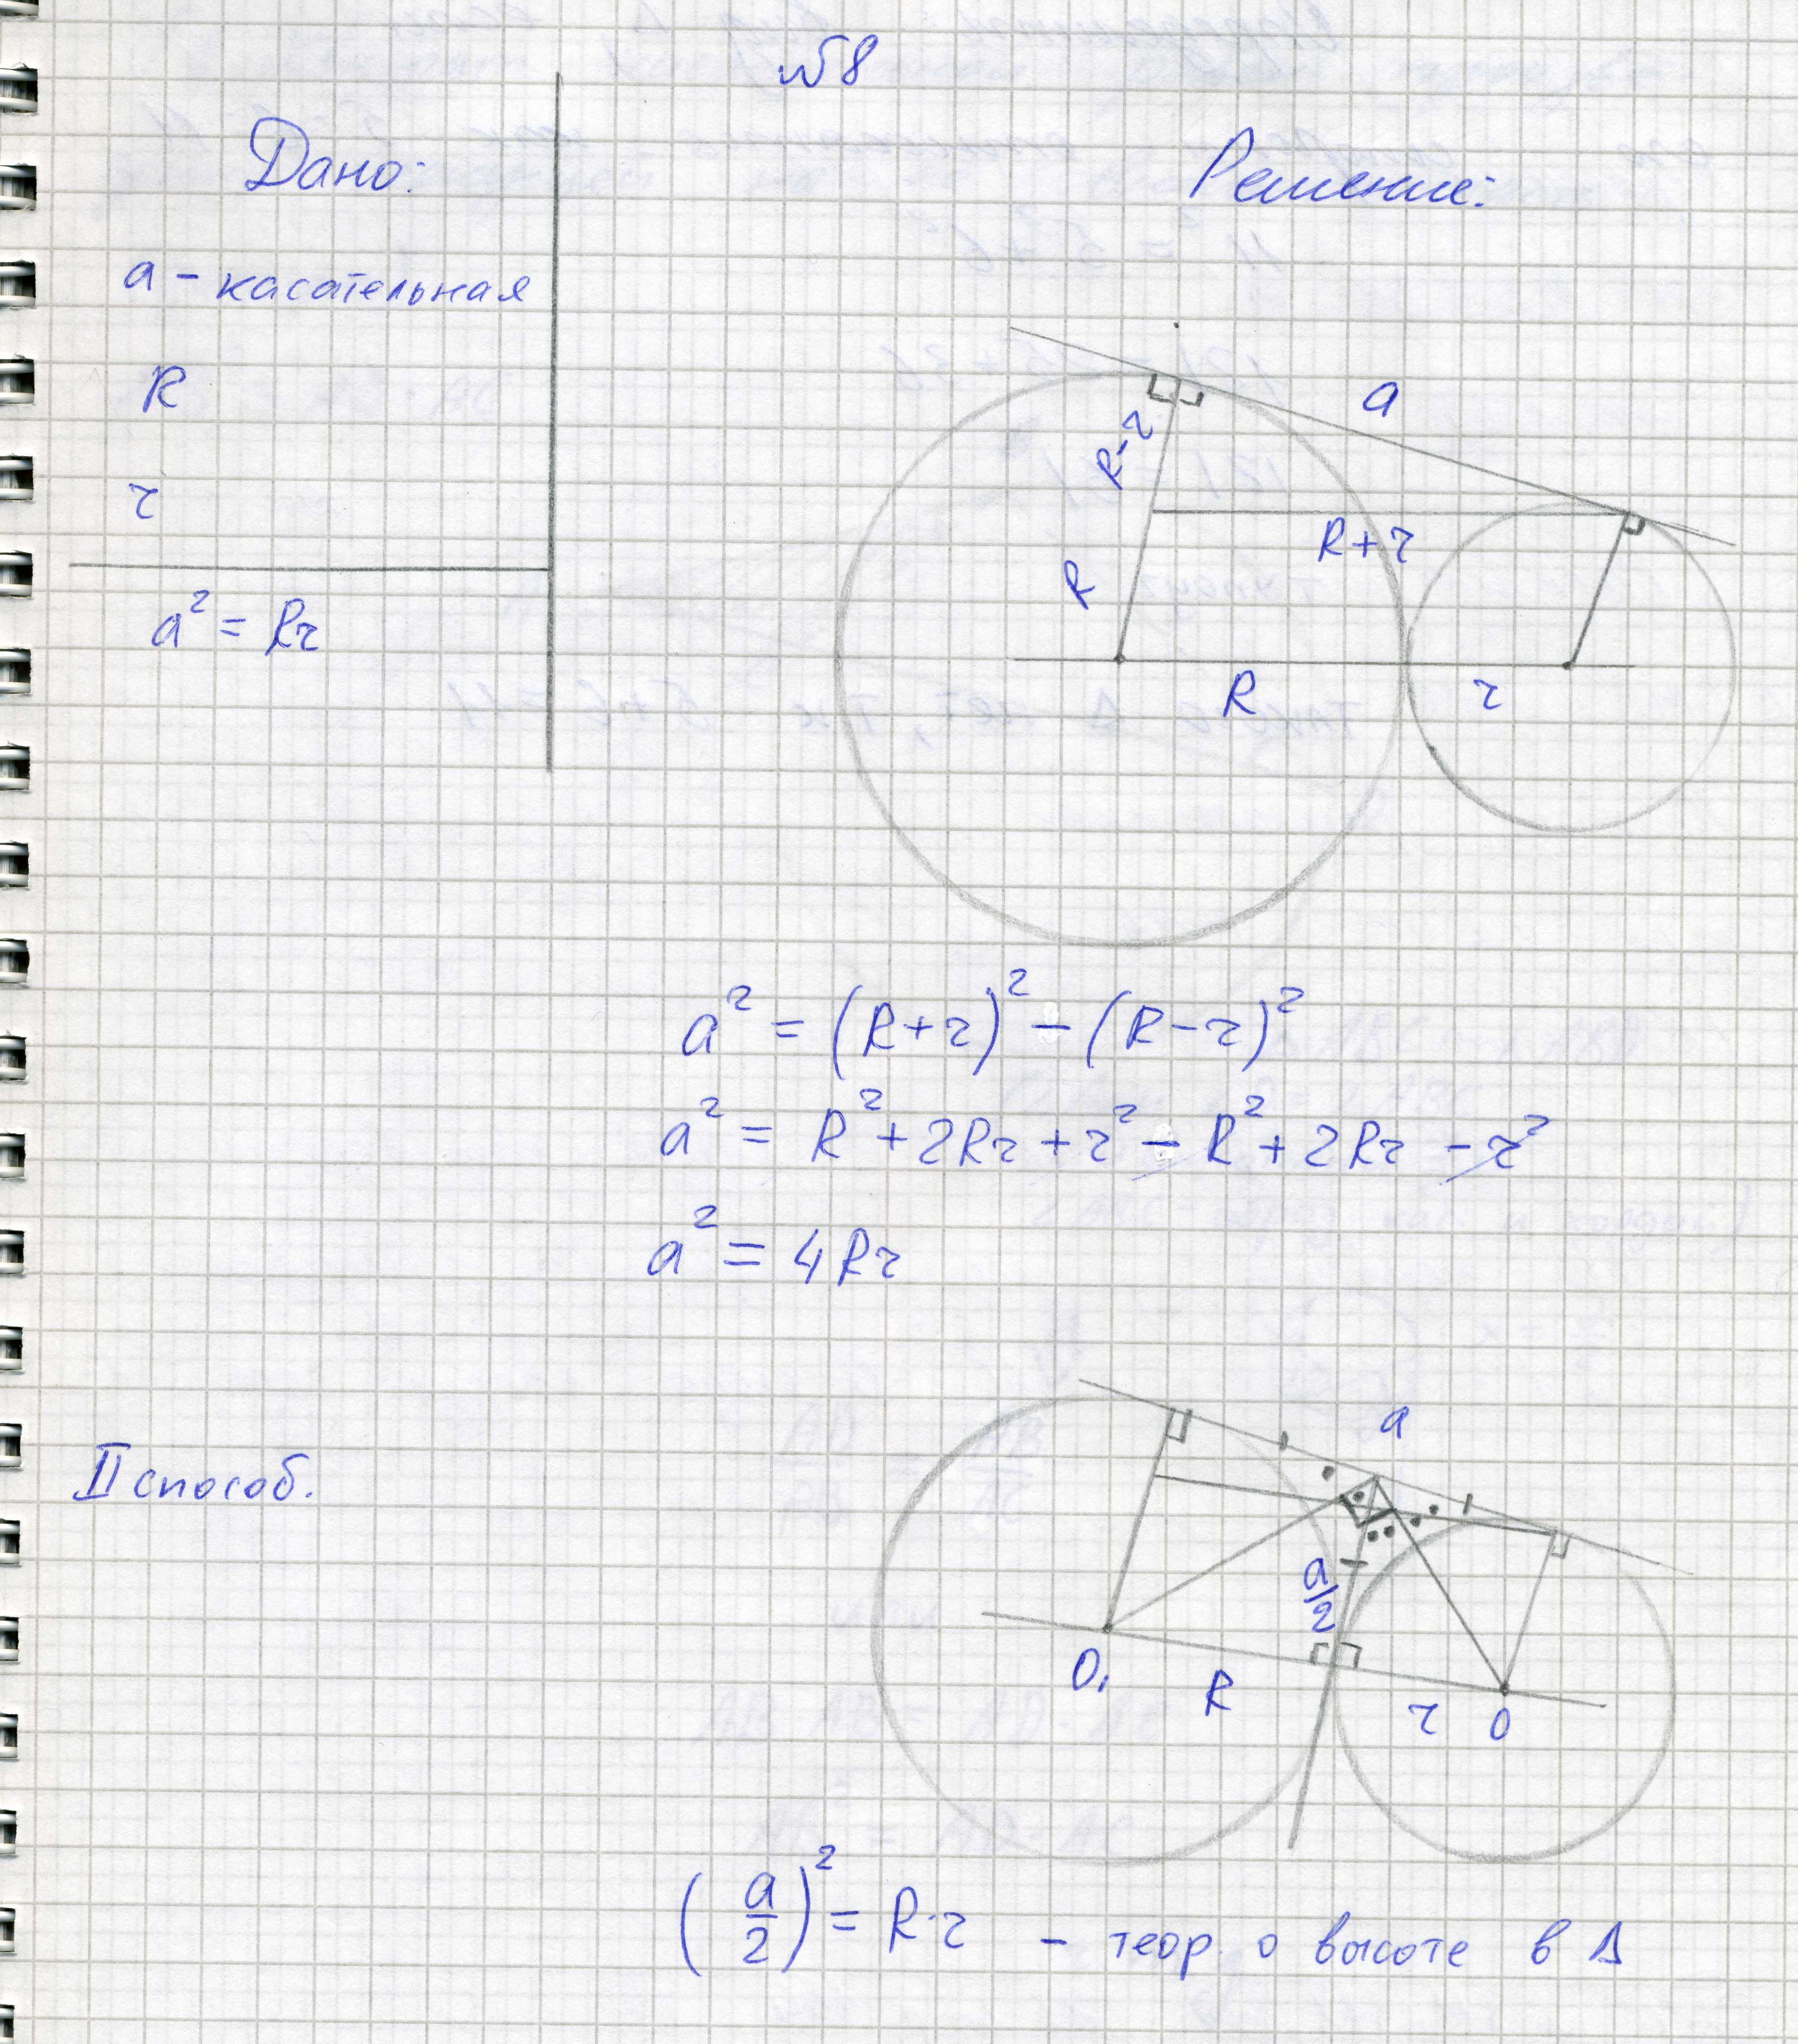 №8
Дано:
Решение:
a - касательная
R
r
a² = Rr
a
R-r
R+r
R
R
r
a² = (R+r)² - (R-r)²
a² = R² + 2Rr + r² - R² + 2Rr - r²
a² = 4Rr
II способ.
a
a/2
O₁
R
r
O
(a/2)² = R·r - теор. о высоте в Δ